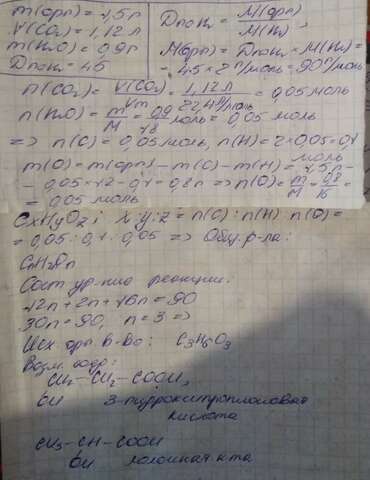 m(орг) = 1,5 г
V(CO₂) = 1,12 л
m(H₂O) = 0,9 г
D по H₂ = 45
D по H₂ = M(орг) / M(H₂) ,
M(орг) = D по H₂ × M(H₂) =
= 45 × 2 г/моль = 90 г/моль
n(CO₂) = V(CO₂) / Vm = 1,12 л / 22,4 л/моль = 0,05 моль
n(H₂O) = m / M = 0,9 / 18 моль = 0,05 моль
=> n(C) = 0,05 моль, n(H) = 2 × 0,05 = 0,1 моль
m(O) = m(орг) - m(C) - m(H) = 1,5 г -
- 0,05 × 12 - 0,1 = 0,8 г => n(O) = m / M = 0,8 / 16 =
= 0,05 моль
CxHyOz ; x : y : z = n(C) : n(H) : n(O) =
= 0,05 : 0,1 : 0,05 => Общ. ф-ла:
CnH2nOn
Сост ур-ние реакции:
12n + 2n + 16n = 90
30n = 90, n = 3 =>
Исх орг в-во: C₃H₆O₃
Возм. изомер:
CH₂ - CH₂ - COOH,
OH 3-гидроксипропановая
кислота
CH₃ - CH - COOH
OH молочная к-та